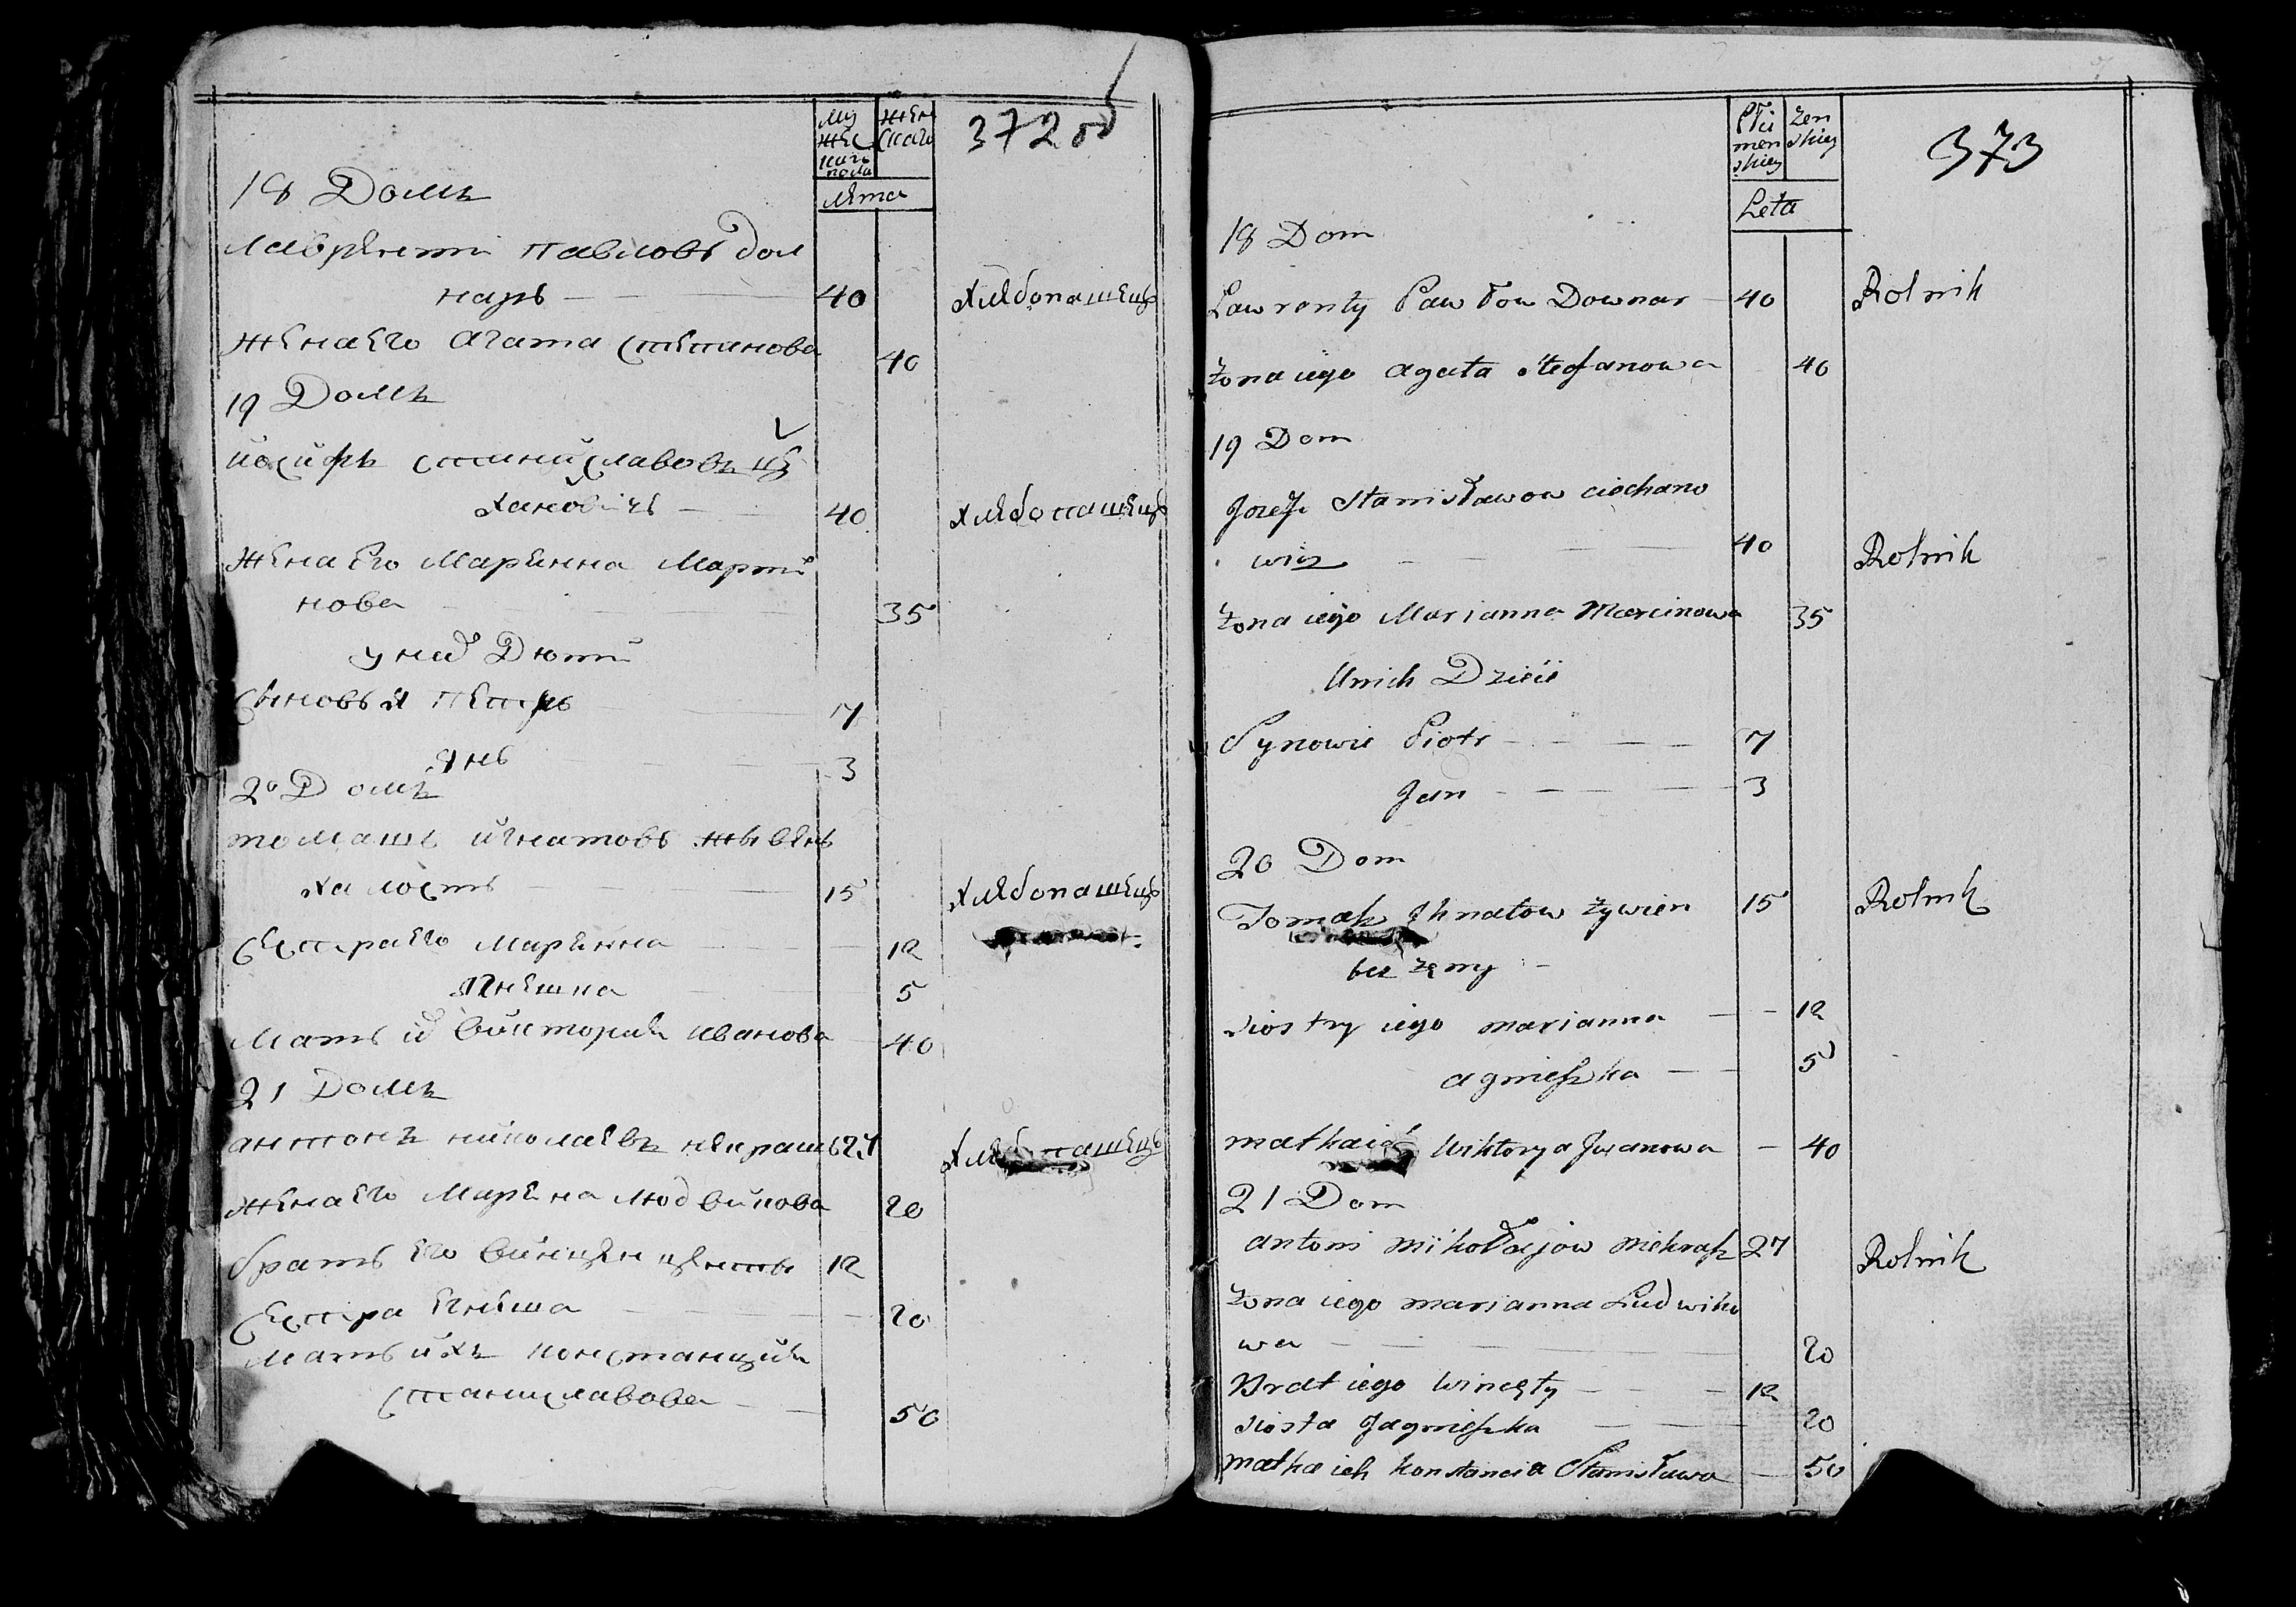 Му
жес
каго
пола
жен
скаго
лета
372 об
18 Домъ
Лаврентi Павловъ дол
наръ — 40 хлебопашецъ
жена его Агата Степанова 40
19 Домъ
йосифъ станйславовъ це
хановiчъ — 40 хлебопашецъ
жена Его Марынна Мартй
нова 35
у них Дютй
Сыновья Петръ 7
янъ 3
20 Домъ
томашъ йгнатовъ жывень
халостъ — 15 хлебопашецъ
Сестра Его Марынна 12
Агнешка 5
мать йх вйкторыя иванова 40
21 Домъ
антонъ нйколаевъ некрашъ 27 хлебопашецъ
жена его Марына людвйкова 20
братъ Его вйнцен 12
Сестра Егнеша 20
мать йхъ констанцйя
станиславова — 50
Płci
męn
skiey
żen
skiey
Leta
373
18 Dom
Lawrenty Pawłow Downar — 40 Rolnik
żona iego Agata Stefanowa 40
19 Dom
Jozef Stanisławow ciechano
wicz — 40 Rolnik
żona iego Marianna Marcinowa 35
Unich Dzieci
Synowie Piotr — 7
Jan — 3
20 Dom
Tomasz Ihnatow żywien 15 Rolnik
bez żęny —
siostry iego marianna — 12
agnieszka — 5
matka ich Wiktorya Jwanowa — 40
21 Dom
antoni mikołajow niekrasz 27 Rolnik
żona iego marianna Ludwiko
wa — 20
Brat iego Wincęty — 12
siosta Jagnieszka — 20
matka ich konstancia Stanisława — 50